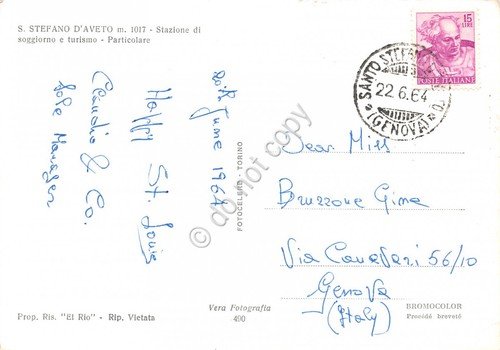 S. STEFANO D'AVETO m. 1017 - Stazione di
soggiorno e turismo - Particolare
15
LIRE
POSTE ITALIANE
SANTO STEFANO D'
22.6.64
(GENOVA)
June 1964
Happy St. Louis
Claudio & Co.
Sole Manager
do not copy
FOTOCELERE - TORINO
Dear Miss
Bruzzone Gina
Via Canevari 56/10
Genova
(Italy)
Prop. Ris. "El Rio" - Rip. Vietata
Vera Fotografia
490
BROMOCOLOR
Procédé breveté